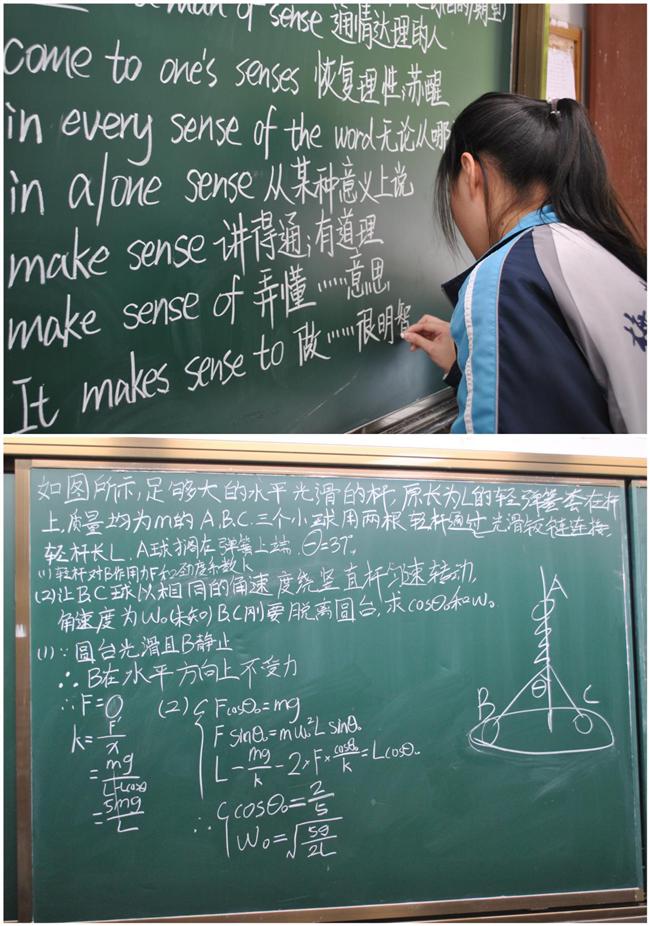 man of sense 通情达理的人
come to one's senses 恢复理性;苏醒
in every sense of the word 无论从哪
in a/one sense 从某种意义上说
make sense 讲得通;有道理
make sense of 弄懂……意思
It makes sense to 做……很明智
如图所示,足够大的水平光滑的杆,原长为L的轻弹簧套在杆
上,质量均为m的A.B.C.三个小球用两根轻杆通过光滑铰链连接,
轻杆长L.A球搁在弹簧上端.θ=37°.
(1)轻杆对B作用力F和劲度系数k
(2)让BC球以相同的角速度绕竖直杆匀速转动,
角速度为W₀(未知)BC刚要脱离圆台,求cosθ₀和W₀.
(1)∵圆台光滑且B静止
∴B在水平方向上不受力
∴F=0
k=F/x
=mg/(L-Lcosθ)
=5mg/L
(2) { Fcosθ₀=mg
Fsinθ₀=mω₀²Lsinθ₀
L-mg/k-2×F×cosθ₀/k=Lcosθ₀
∴ { cosθ₀=2/5
W₀=√(5g/2L)
A
θ
B
C